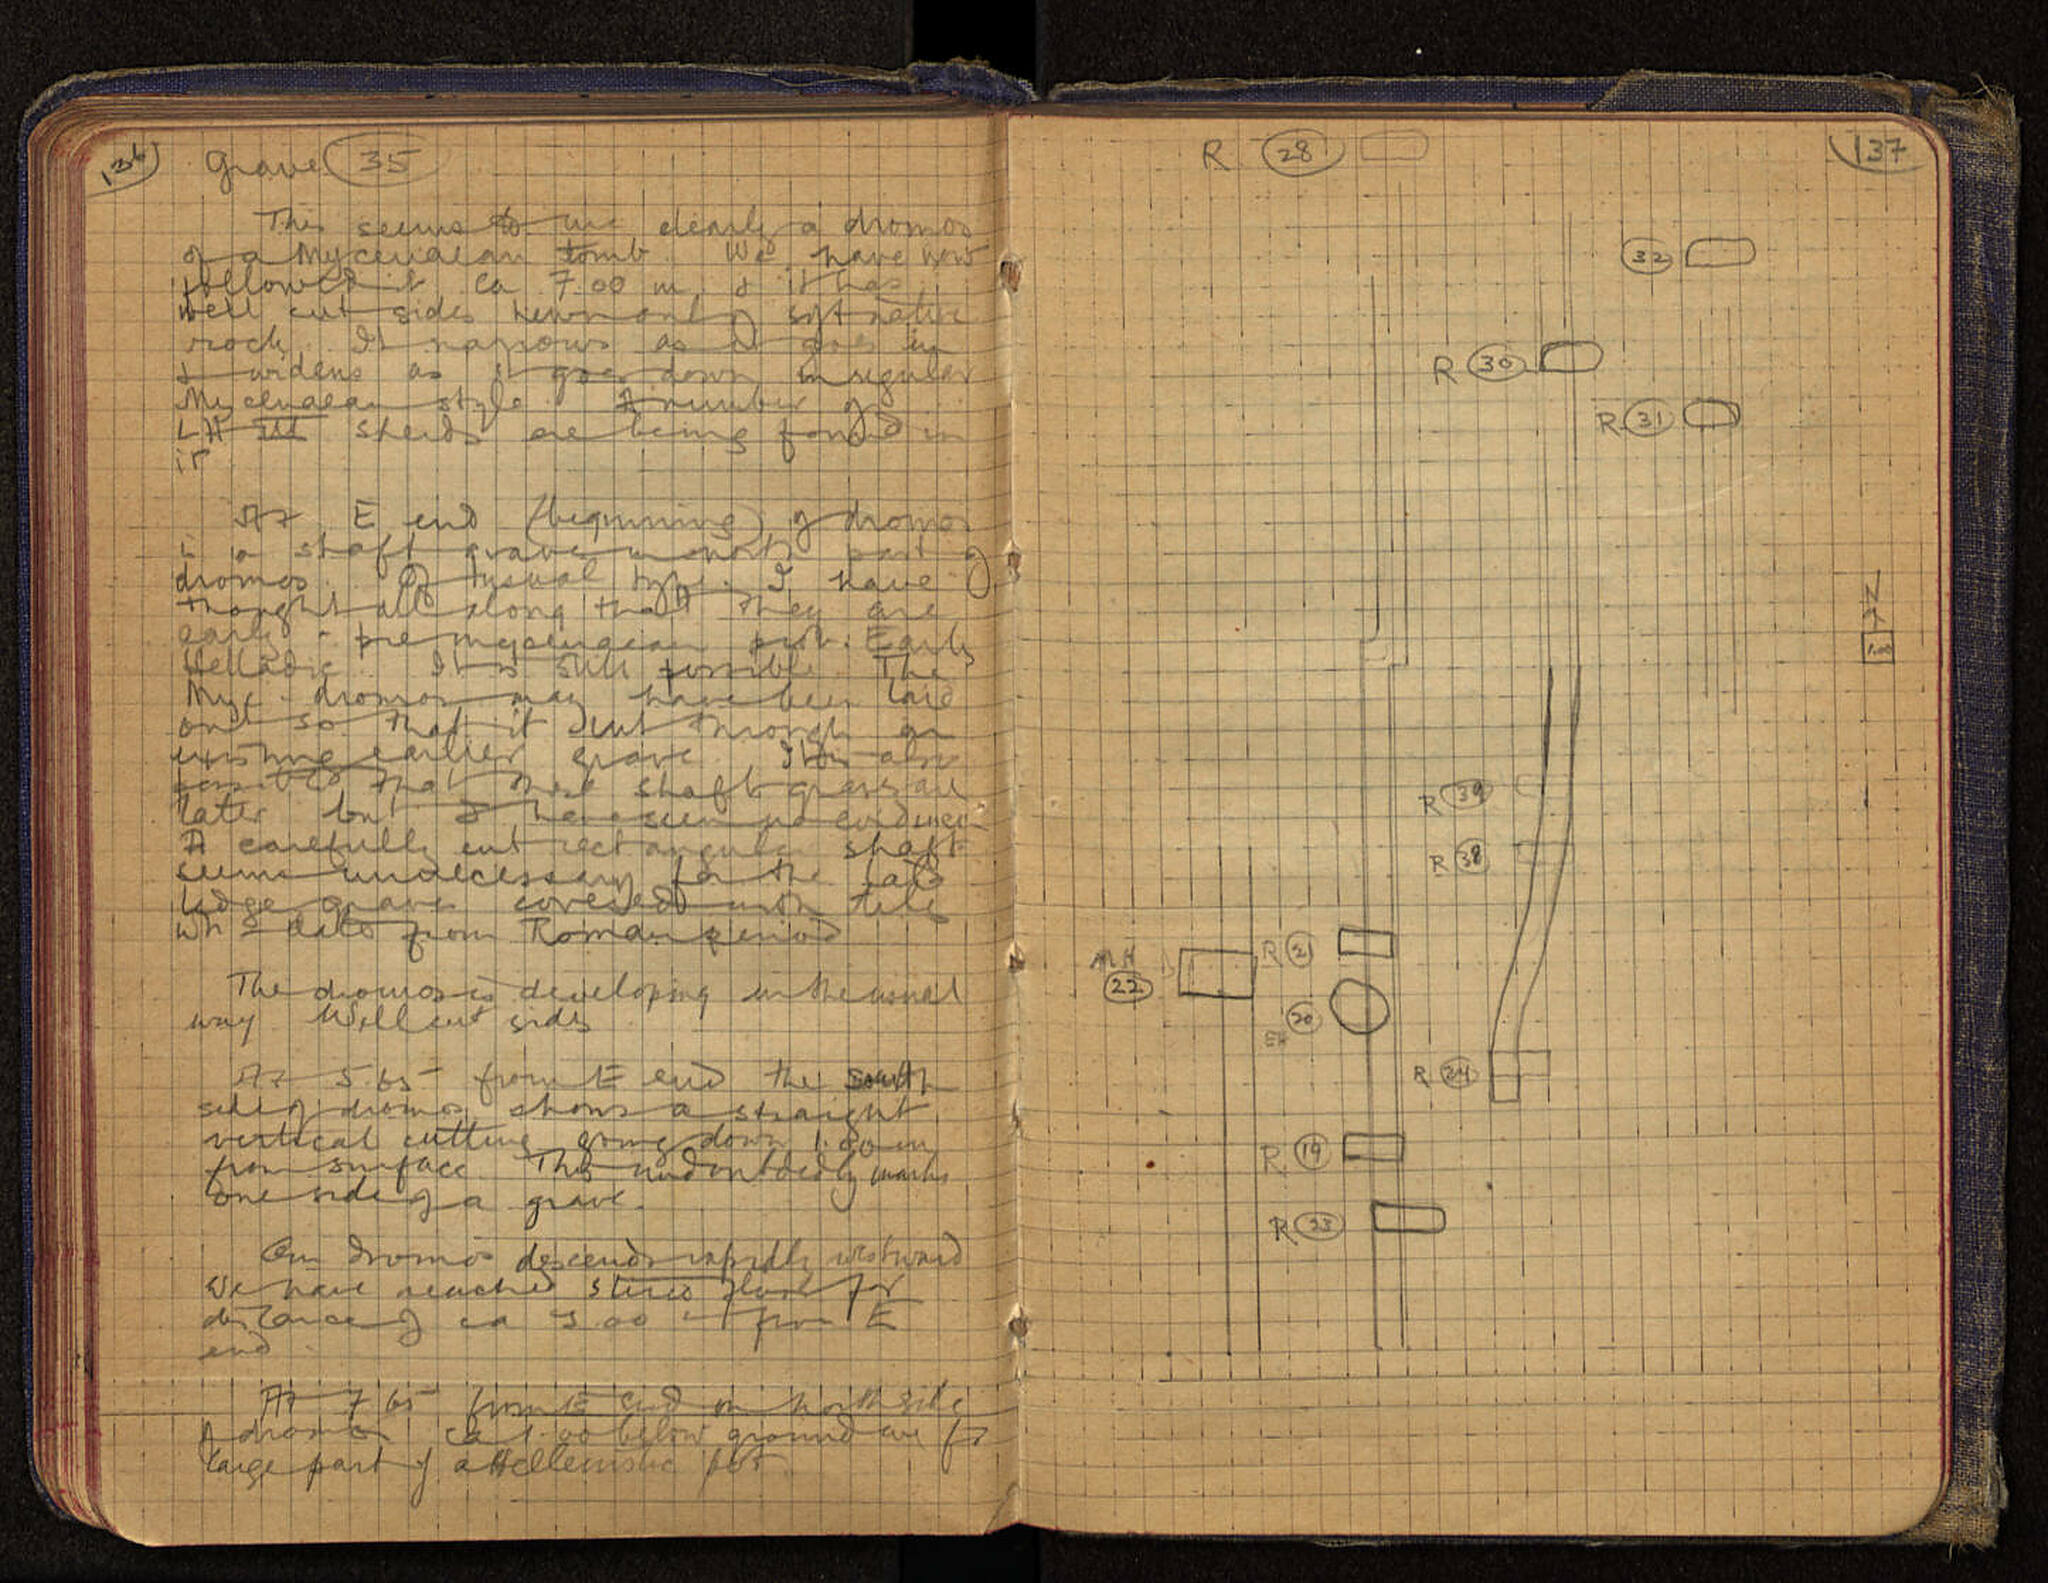 136 Grave 35
This seems to me clearly a dromos
of a Mycenaean tomb. We have now
followed it ca 7.00 m. & it has
well cut sides hewn out of soft native
rock. It narrows as it goes in
& widens as it goes down in regular
Mycenaean style. A number of
LH III sherds are being found in
it
At E end (beginning) of dromos
is a shaft grave in north part of
dromos. Of usual type. I have
thought all along that they are
early - premycenaean prob. Early
Helladic. It is still possible. The
Myc. dromos may have been laid
out so that it cut through an
existing earlier grave. It is also
possible that these shaft graves are
later but I have seen no evidence
A carefully cut rectangular shaft
seems unnecessary for the
ledge graves covered with tiles
wh date from Roman period
The dromos is developing in the usual
way Well cut sides
At 5.65 from E end the south
side of dromos shows a straight
vertical cutting going down 1.00 m
from surface. This undoubtedly marks
one side of a grave.
Our dromos descends rapidly westward
We have reached stereo floor for
distance of ca 5.00 from E
end.
At 7.65 from E end on north side
of dromos ca 1.00 below ground we fd
large part of a Hellenistic pot
137
R 28
32
R 30
R 31
N
1.00
R 39
R 38
R 21
MH
22
20
EH
R 24
R 19
R 23